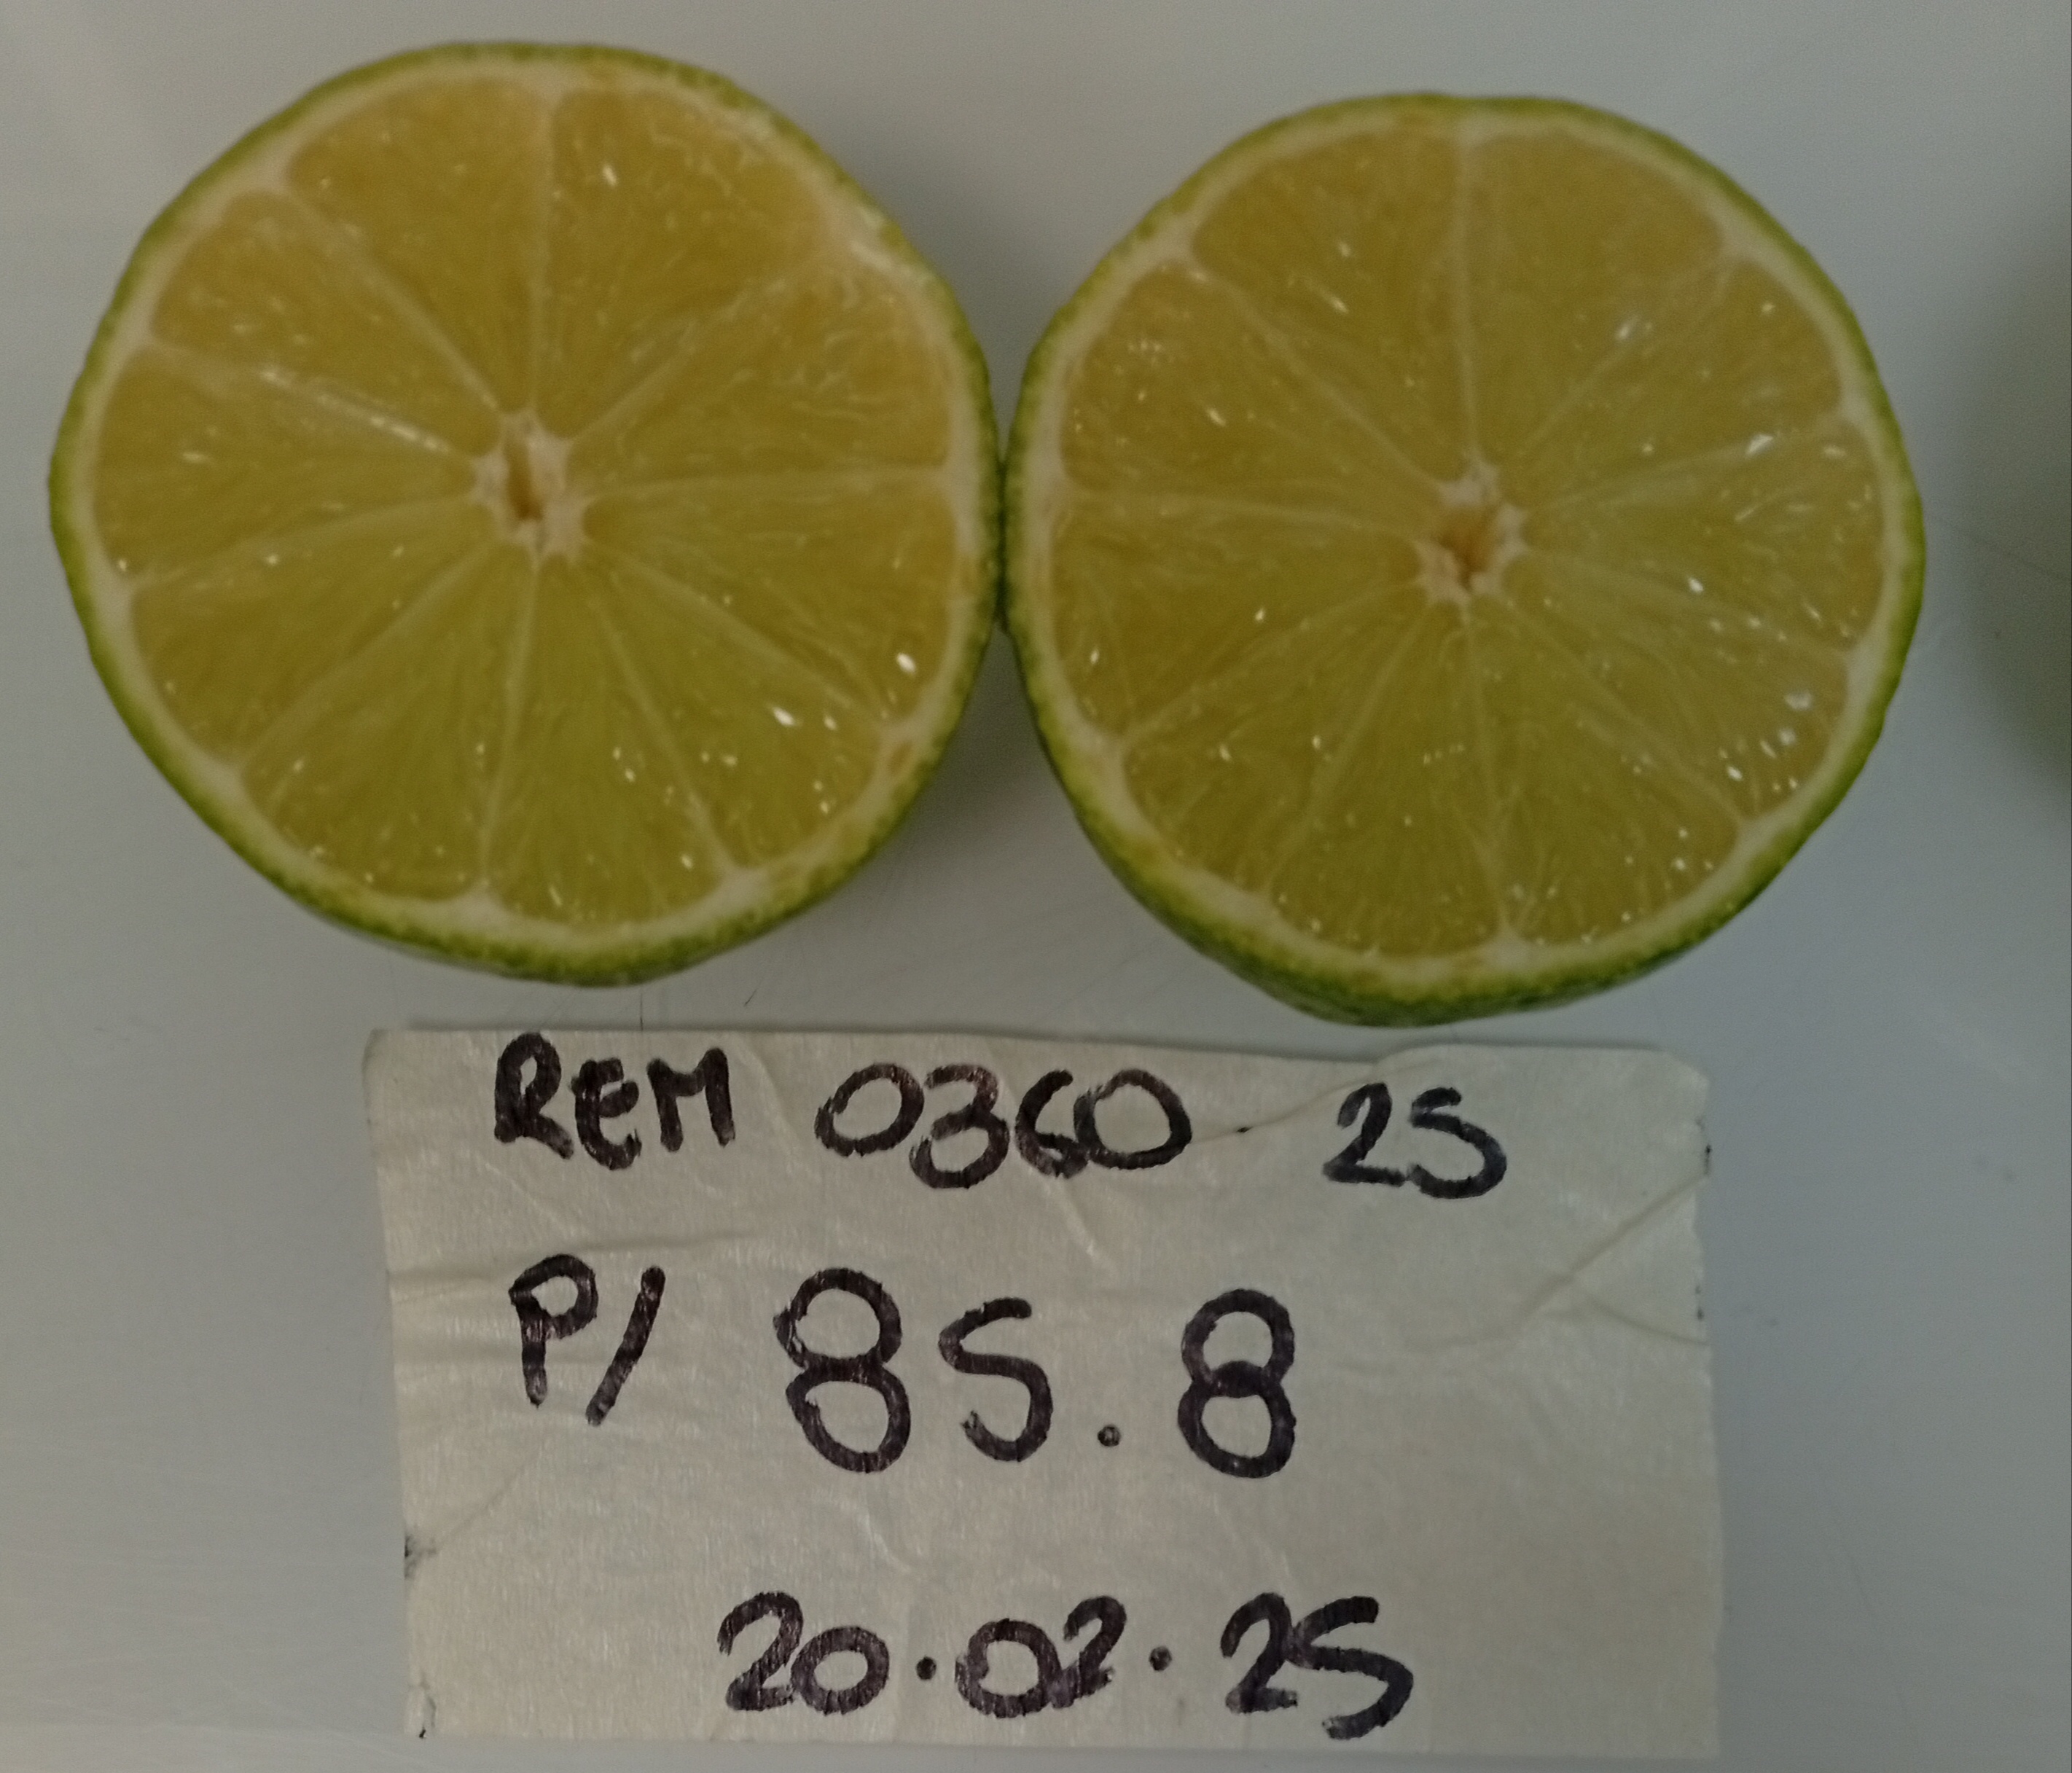 REM 0360 25
P/ 85.8
20.02.25